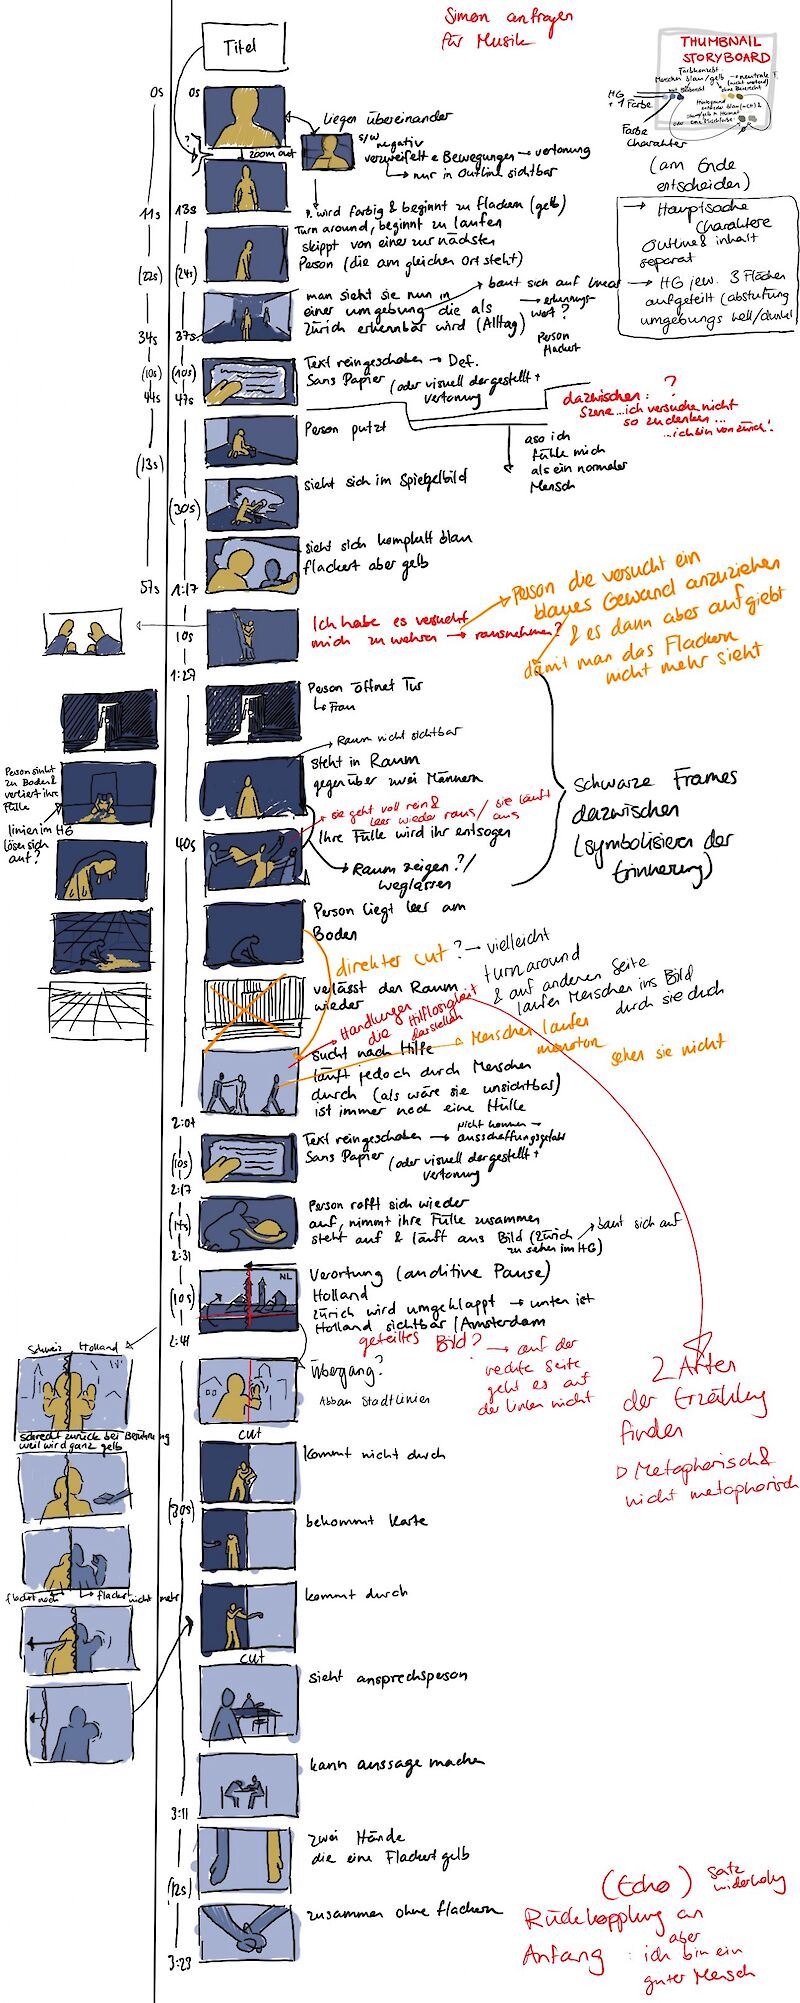 Simon anfragen
für Musik
THUMBNAIL
STORYBOARD
Farbkonzept:
Menschen blau/gelb
HG
+ 1 Farbe
Farbe
Charakter
(am Ende
entscheiden)
→ Hauptsache
Charaktere
Outline & inhalt
separat
→ HG jew. 3 Flächen
aufgeteilt (abstufung
umgebungs hell/dunkel
Titel
0s
0s
liegen übereinander
zoom out
s/w
negativ
verzweifelte Bewegungen → vertonung
→ nur in Outline sichtbar
11s
13s
P. wird farbig & beginnt zu flackern (gelb)
Turn around, beginnt zu laufen
skippt von einer zur nächsten
Person (die am gleichen Ort steht)
(22s)
(24s)
man sieht sie nun in
einer umgebung die als
Zürich erkennbar wird (Alltag)
baut sich auf linear
→ erkennungs-
wert?
Person
flackert
34s
37s
Text reingeschoben → Def.
Sans Papier (oder visuell dargestellt +
vertonung
(10s)
(10s)
44s
47s
dazwischen: ?
Szene...ich versuche nicht
so zu denken...
...ich bin von zürich!
Person putzt
aso ich
fühle mich
als ein normaler
Mensch
(13s)
sieht sich im Spiegelbild
(30s)
sieht sich komplett blau
flackert aber gelb
57s
1:17
Ich habe es versucht
mich zu wehren → rausnehmen?
10s
Person die versucht ein
blaues Gewand anzuziehen
& es dann aber aufgiebt
damit man das Flackern
nicht mehr sieht
1:27
Person öffnet Tür
↳ Frau
→ Raum nicht sichtbar
steht in Raum
gegenüber zwei Männern
Person sinkt
zu Boden &
verliert ihre
Fülle
linien im HG
lösen sich
auf?
→ sie geht voll rein &
leer wieder raus / sie läuft
aus
Ihre Fülle wird ihr entzogen
→ Raum zeigen? /
weglassen
40s
Schwarze Frames
dazwischen
(symbolisieren der
Erinnerung)
Person liegt leer am
Boden
direkter cut? → vielleicht
turnaround
& auf anderen Seite
laufen Menschen ins Bild
durch sie duch
verlässt den Raum
wieder
Handlungen
die Hilflosigkeit
darstellen
Menschen laufen
monoton
sehen sie nicht
sucht nach Hilfe
läuft jedoch durch Menschen
durch (als wäre sie unsichtbar)
ist immer noch eine Hülle
2:07
Text reingeschoben → ausschaffungsgefahr
Sans Papier (oder visuell dargestellt +
vertonung
(10s)
2:17
Person rafft sich wieder
auf, nimmt ihre Fülle zusammen
steht auf & läuft aus Bild (Zürich
zu sehen im HG)
→ baut sich auf
(14s)
2:31
NL
Verortung (auditive Pause)
Holland
Zürich wird umgeklappt → unten ist
Holland sichtbar / Amsterdam
(10s)
2:41
geteiltes Bild? → auf der
rechte Seite
geht es auf
der linken nicht
Schweiz Holland
Übergang?
Abbau Stadtlinien
schreckt zurück bei Berührung
weil wird ganz gelb
2 Arten
der Erzählung
finden
Metaphorisch &
nicht metaphorisch
cut
kommt nicht durch
(30s)
bekommt Karte
flackert noch → flackert nicht mehr
kommt durch
cut
sieht ansprechsperson
kann aussage machen
3:11
zwei Hände
die eine Flackert gelb
(12s)
zusammen ohne flackern
3:23
(Echo) Satz
widerholg
Rückkopplung an
Anfang : aber
ich bin ein
guter Mensch